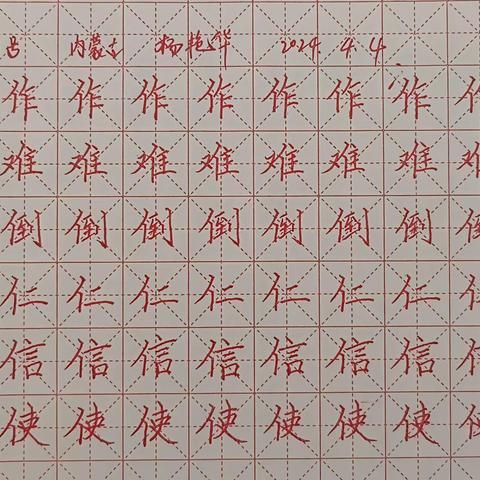 内蒙古 杨艳华 2024.4.4.
作 作 作 作 作 作 作 作
难 难 难 难 难 难 难 难
倒 倒 倒 倒 倒 倒 倒 倒
仁 仁 仁 仁 仁 仁 仁 仁
信 信 信 信 信 信 信 信
使 使 使 使 使 使 使 使